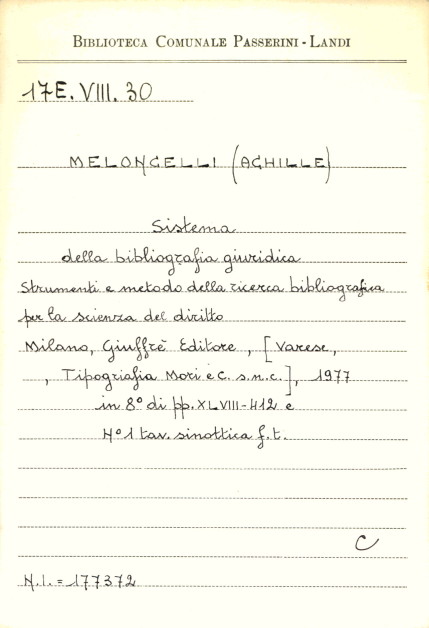 BIBLIOTECA COMUNALE PASSERINI - LANDI
17E. VIII. 30
MELONCELLI (ACHILLE)
Sistema
della bibliografia giuridica
Strumenti e metodo della ricerca bibliografica
per la scienza del diritto
Milano, Giuffrè Editore, [Varese,
, Tipografia Mori e C. s.n.c.], 1977
in 8° di pp. XLVIII-412 e
N° 1 tav. sinottica f.t.
C
N.I. = 177372